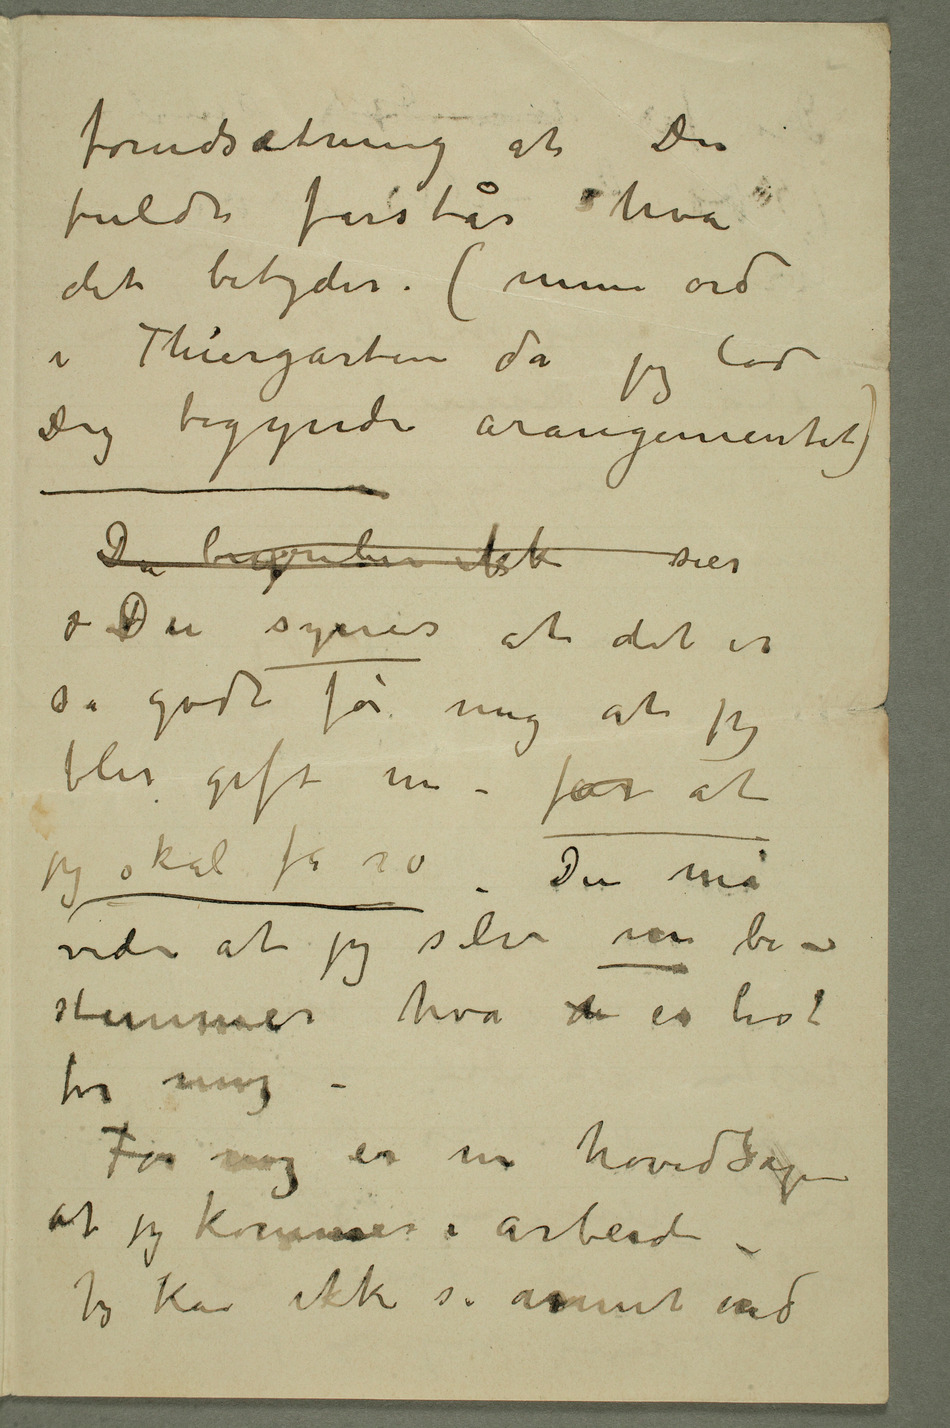 forudsætning at Du
fuldt forstår hva
det betyder. (mine ord
i Thiergarten da jeg lod
Dig begynde arangementet)
Du begriber ikke sier
Du synes at det er
så godt for mig at jeg
blir gift nu – for at
jeg skal få ro – Du må
vide at jeg selv nu be–
stemmer hva de er best
for mig –
For mig er nu hovedsagen
at jeg kommer i arbeide –
Jeg kan ikke se annet end